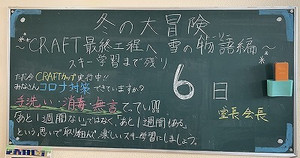 冬の大冒険
～CRAFT最終工程へ 雪の物語編～
スキー学習まで残り
6日
ただ今CRAFTカップ実行中!!
みなさんコロナ対策できていますか？
手洗い・消毒・無言でていい!!
「あと1週間しかない」ではなく、「あと1週間もある」
という思いで取り組んで、楽しいスキー学習にしましょう。
室長会長